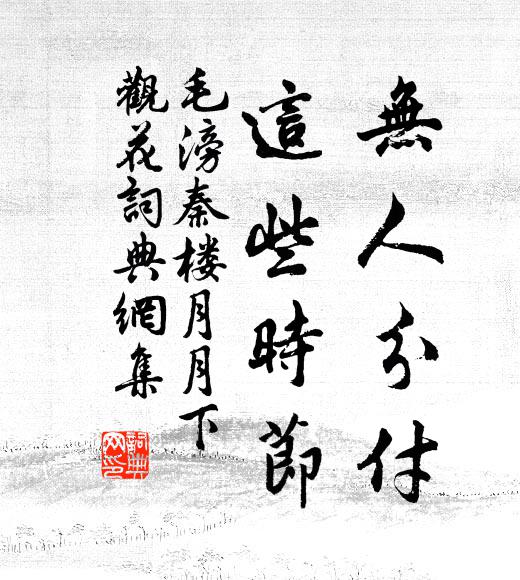 無人分付
這些時節
毛滂秦楼月月下
觀花詞典網集
詞典
网印